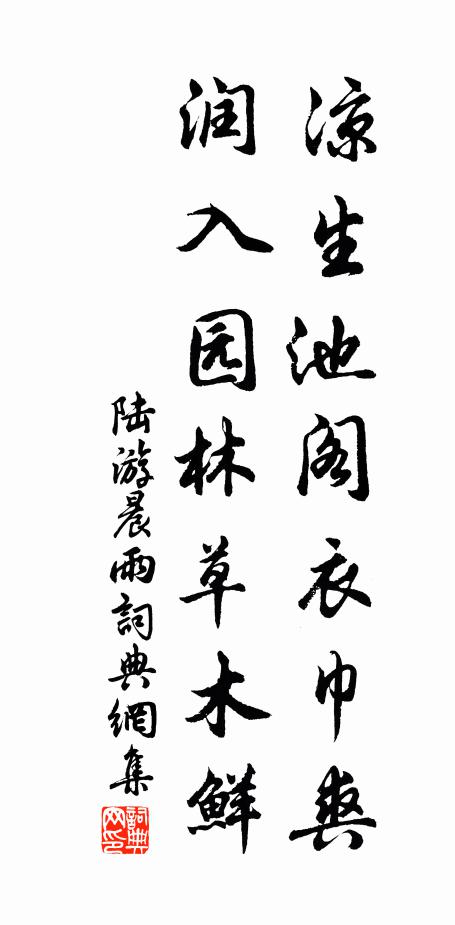 凉生池阁衣巾爽
润入园林草木鲜
陆游晨雨詞典網集
詞典网印